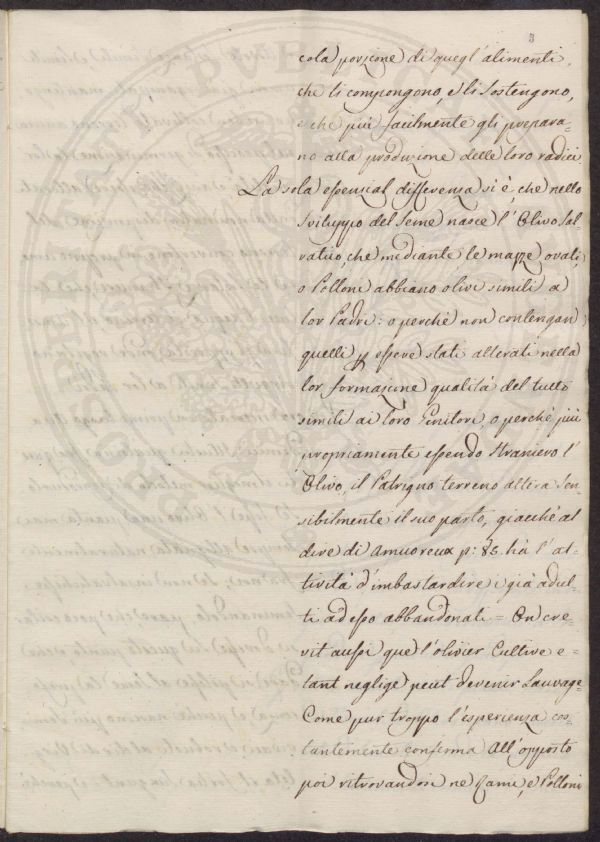 3
cola porzione di quegl'alimenti,
che li compongono, e li sostengono,
e che più facilmente gli prepara-
no alla produzione delle loro radici
La sola essenzial differenza si è, che nello
sviluppo del seme nasce l'Olivo sal-
vatico, che mediante le mazze ovati,
o Polloni abbiano olivi simili a
lor Padri: o perchè non contengan
quelli p essere stati alterati nella
lor formazione qualità del tutto
simili ai loro Genitori, o perchè più
propriamente essendo straniero l'
Olivo, il Patrigno terreno altera sen-
sibilmente il suo parto, giacchè al
dire di Amuoreux p: 85. hà l'at-
tività d'imbastardire i già adul-
ti ad esso abbandonati = On cre-
vit aussi que l'olivier Cultive e-
tant neglige peut devenir Sauvage =
Come pur troppo l'esperienza cos-
tantemente conferma All'opposto
poi ritrovandosi ne Rami, e Polloni